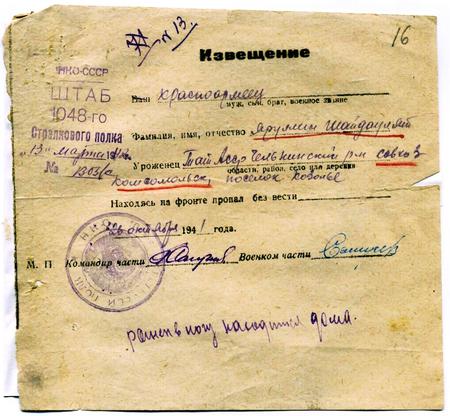 н 13.
16
Извещение
НКО-СССР
ШТАБ
1048-го
Стрелкового полка
"13" марта
№ 1303/с
Ваш красноармеец
муж, сын, брат, военное звание
Фамилия, имя, отчество
Уроженец Тат АССР Челнинский р-н совхоз
область, район, село или деревня
комсомольск, поселок
Находясь на фронте пропал без вести
26 октября 1941 года.
М. П. Командир части
Военком части
ранен в ногу находится дома.